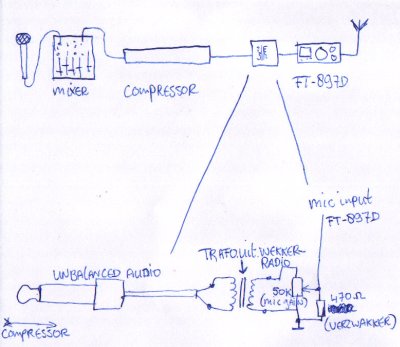 MIXER
COMPRESSOR
FT-897D
mic input
FT-897D
TRAFO.uit.WEKKER-
RADIO
UNBALANCED AUDIO
50K
(MIC GAIN)
470Ω
(VERZWAKKER)
COMPRESSOR